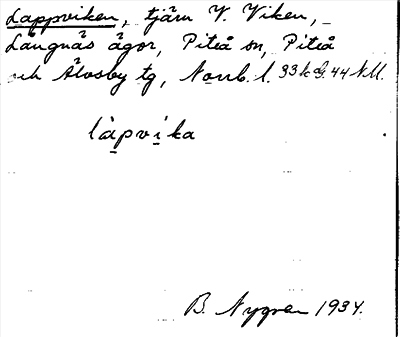 Lappviken, tjärn V. Viken,
Långnäs ägor, Piteå sn, Piteå
och Älvsby tg, Norrb. l. 33 k G. 44 NU.
làpvika
B. Nygren 1934.